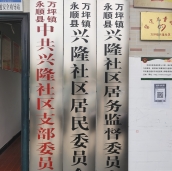 永顺县
万坪镇
中共兴隆社区支部委员
永顺县
万坪镇
兴隆社区居民委员会
永顺县
万坪镇
兴隆社区居务监督委员